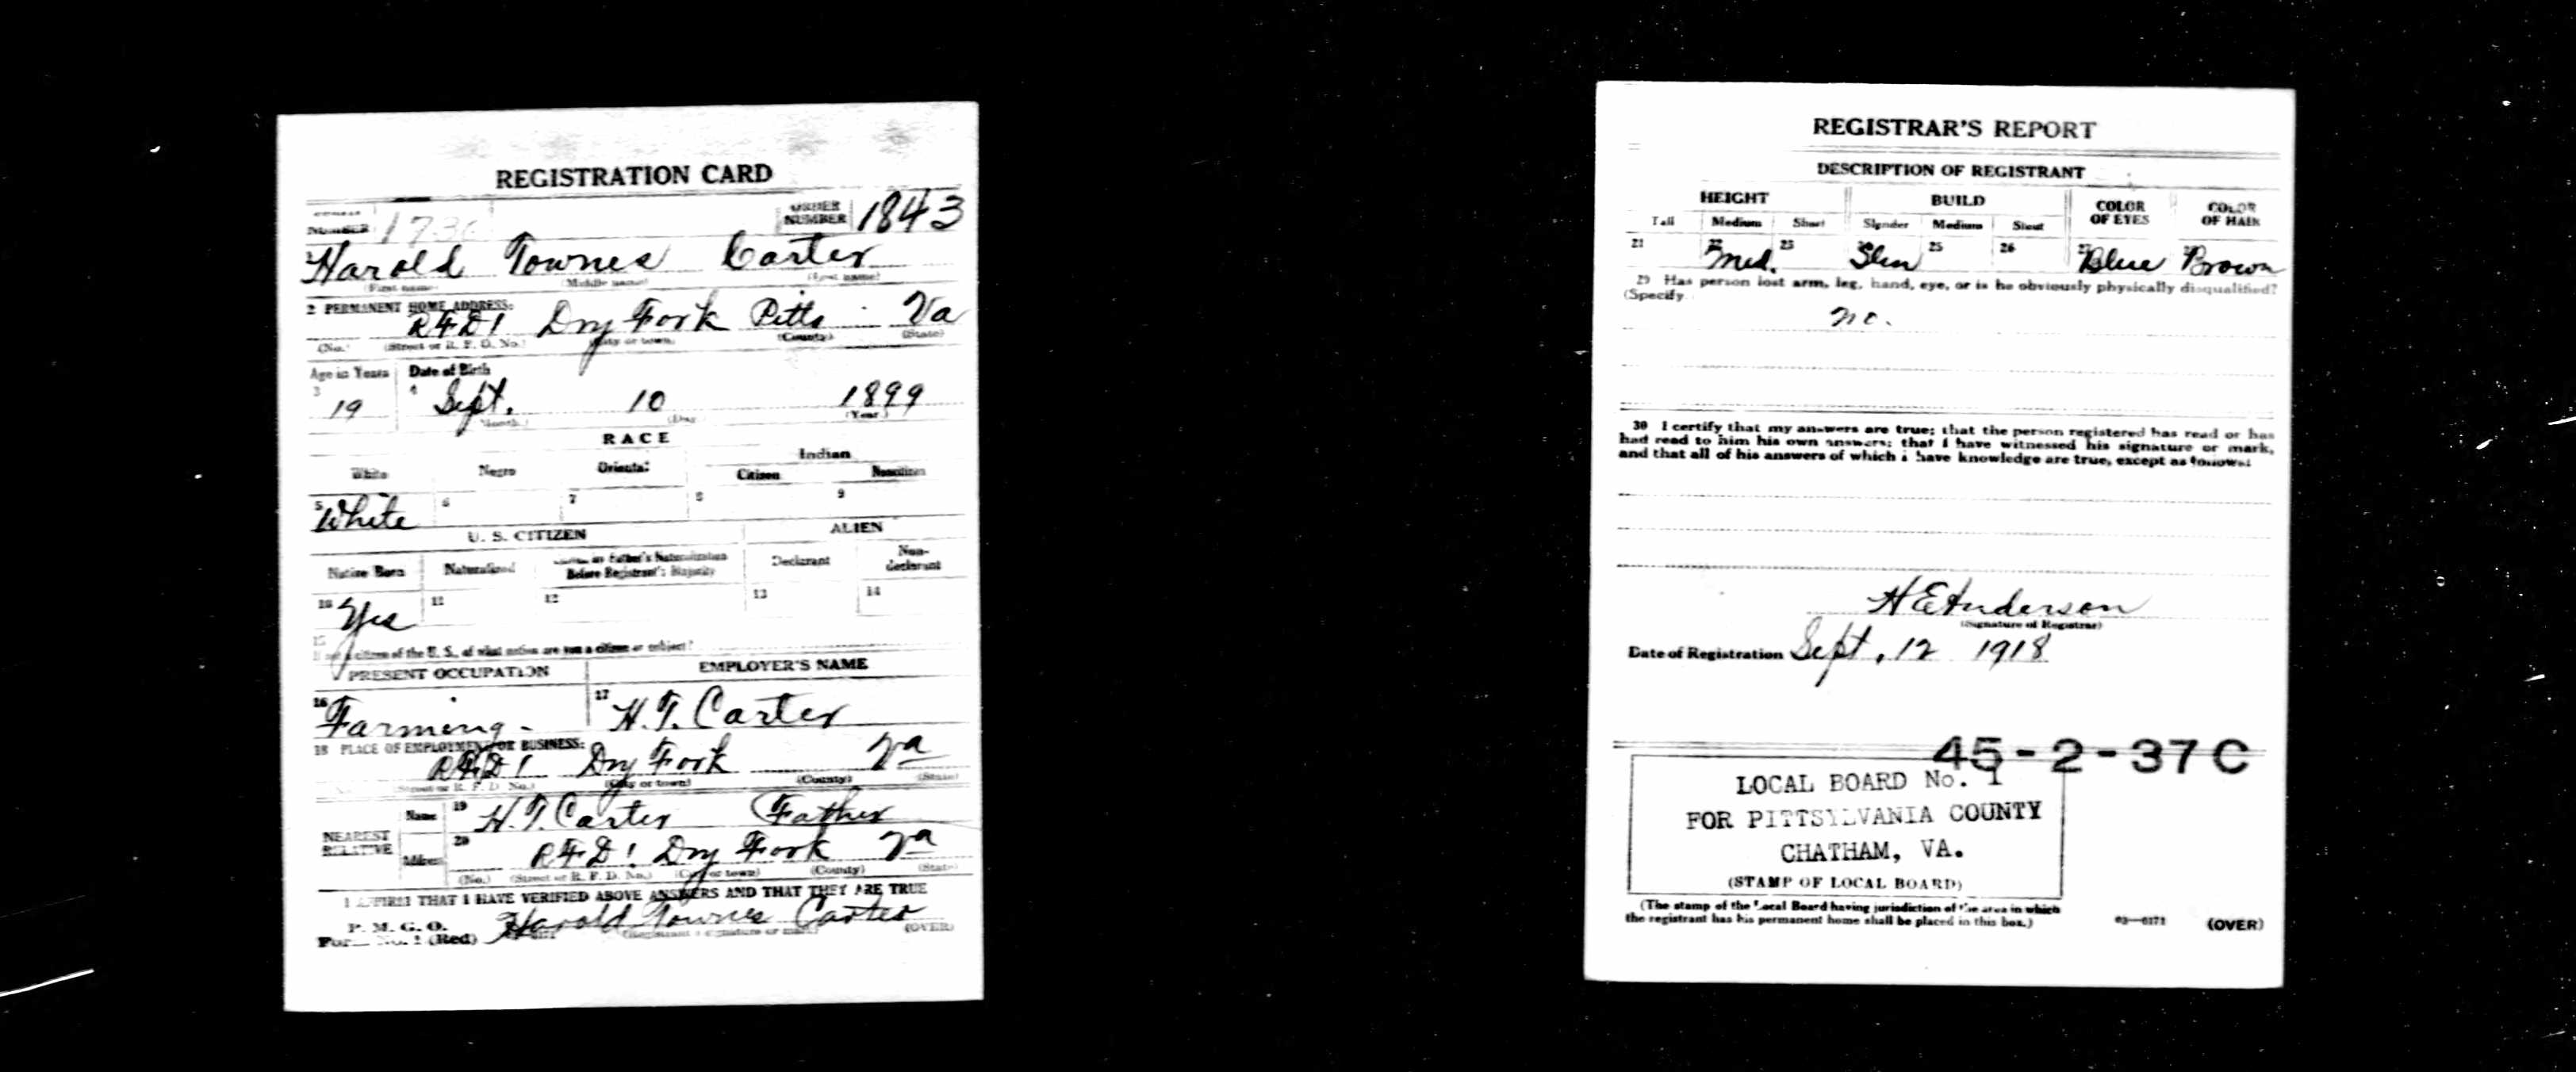 REGISTRATION CARD
NUMBER 173 ORDER NUMBER 1843
1 Harold Townes Carter
(First name) (Middle name) (Last name)
2 PERMANENT HOME ADDRESS:
RFD1 Dry Fork Pitts Va
(No.) (Street or R. F. D. No.) (City or town) (County) (State)
Age in Years Date of Birth
3 19 4 Sept. 10 1899
(Month.) (Day (Year.)
RACE
White Negro Oriental Indian
Citizen Noncitizen
5 White 6 7 8 9
U. S. CITIZEN ALIEN
Native Born Naturalized Citizen by Father's Naturalization Before Registrant's Majority Declarant Non-declarant
10 Yes 11 12 13 14
15
If not a citizen of the U. S., of what nation are you a citizen or subject?
PRESENT OCCUPATION EMPLOYER'S NAME
16 Farming - 17 H.T. Carter
18 PLACE OF EMPLOYMENT OR BUSINESS:
RFD1 Dry Fork Va
(Street or R. F. D. No.) (City or town) (County) (State)
NEAREST RELATIVE Name 19 H.T. Carter Father
Address 20 RFD1 Dry Fork Va
(No.) (Street or R. F. D. No.) (City or town) (County) (State)
I AFFIRM THAT I HAVE VERIFIED ABOVE ANSWERS AND THAT THEY ARE TRUE
P. M. G. O.
Form No. 1 (Red) Harold Townes Carter
(Registrant's signature or mark) (OVER)
REGISTRAR'S REPORT
DESCRIPTION OF REGISTRANT
HEIGHT BUILD COLOR OF EYES COLOR OF HAIR
Tall Medium Short Slender Medium Stout
21 22 Med. 23 24 Slen 25 26 27 Blue 28 Brown
29 Has person lost arm, leg, hand, eye, or is he obviously physically disqualified?
(Specify.
no.
30 I certify that my answers are true; that the person registered has read or has
had read to him his own answers; that I have witnessed his signature or mark,
and that all of his answers of which I have knowledge are true, except as follows:
H E Anderson
(Signature of Registrar)
Date of Registration Sept. 12 1918
45-2-37 C
LOCAL BOARD No. 1
FOR PITTSYLVANIA COUNTY
CHATHAM, VA.
(STAMP OF LOCAL BOARD)
(The stamp of the Local Board having jurisdiction of the area in which
the registrant has his permanent home shall be placed in this box.)
03—6171 (OVER)